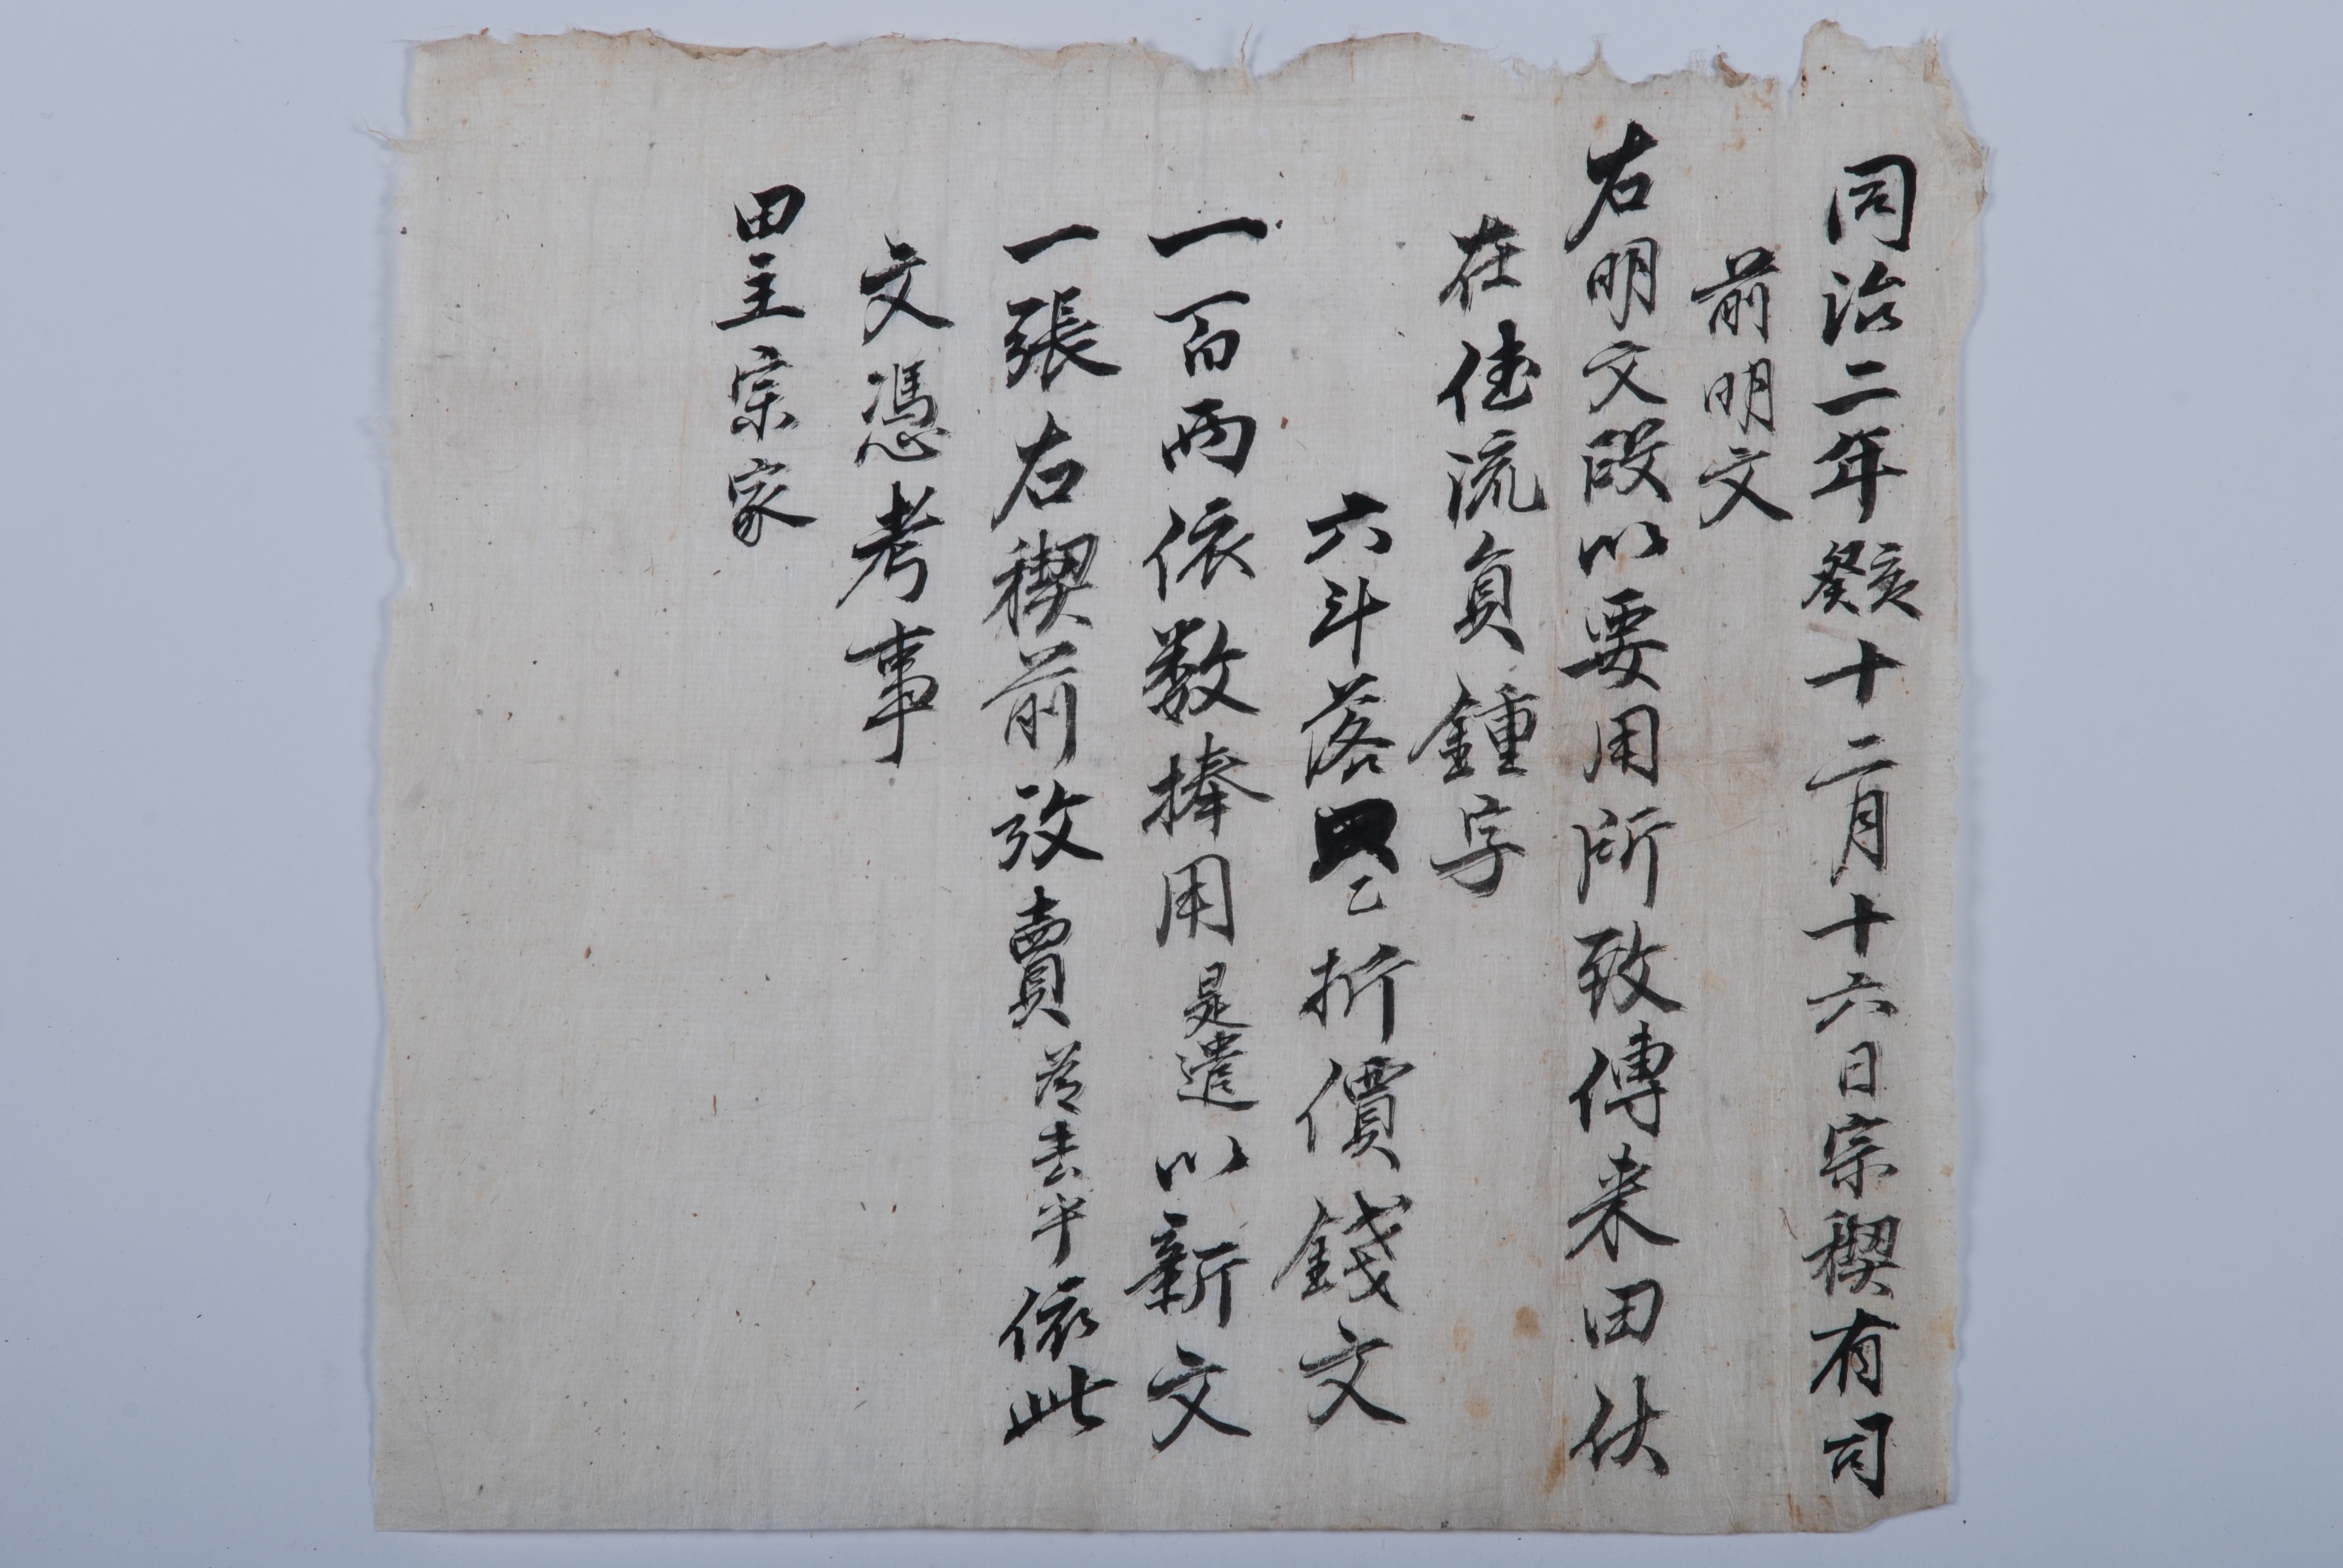 同治二年癸亥十二月十六日宗稧有司
前明文
右明文段以要用所致傳来田伏
在佳流員鍾字
六斗落㐣折價錢文
一百兩依数捧用是遣以新文
一張右稧前放賣為去乎依此
文憑考事
田主宗家